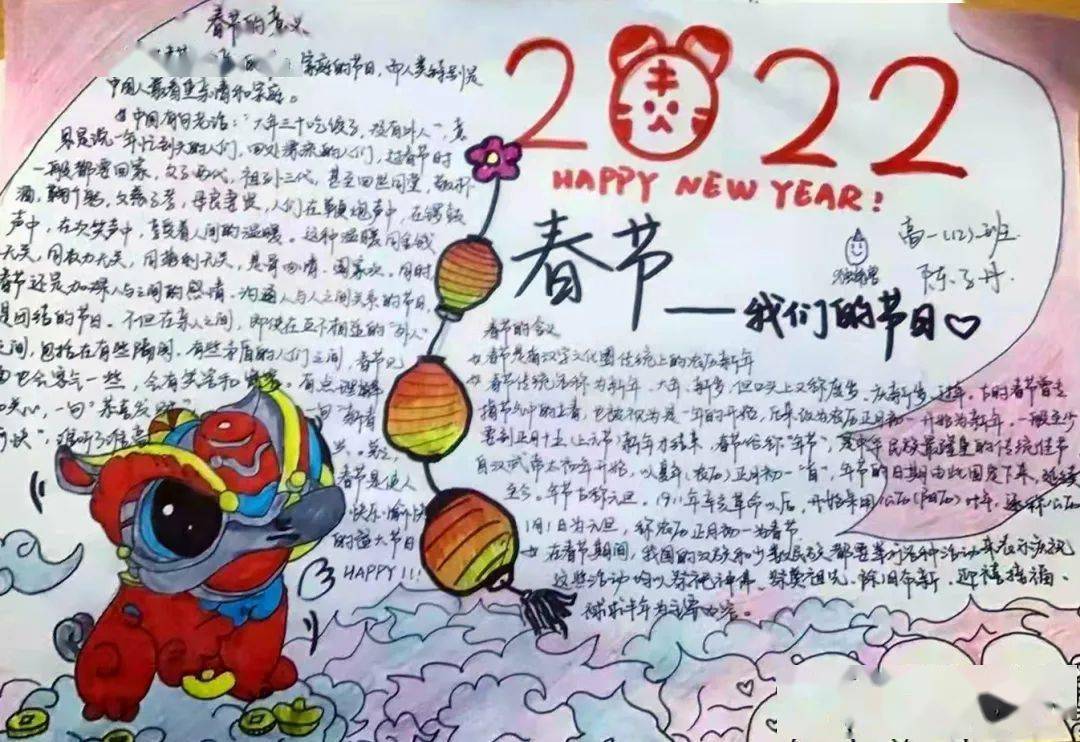 春节的意义
家庭的节日，而人类特别是
中国人最看重亲情和家庭。
中国有句老话：“大年三十吃饺子，没有外人”，意
思是说一年忙到头的人们，四处漂泊的人们，过春节时
一般都要回家，父子两代，祖孙三代，甚至四世同堂，
人们在鞭炮声中，在锣鼓
声中，在欢笑声中，享受着人间的温暖。这种温暖同金钱
无关，同权力无关，同势利无关，
春节还是加深人与人之间的感情，沟通人与人之间关系的节日，
是团结的节日。不但在亲人之间，即使在互不相连的
之间，包括在有些隔阂，有些矛盾的人们之间，春节见
也会客气一些，会有笑容和
春节是使人
快乐
的盛大节日
HAPPY!!!
2022
HAPPY NEW YEAR!
春节
——我们的节日♡
高一(12)班
春节的含义
春节是指汉字文化圈传统上的农历新年
春节传统名称为新年、大年、新岁，但口头上又称度岁、庆新岁、过年。古时春节曾专
指节气中的立春，也被视为是一年的开始，后来改为农历正月初一开始为新年。一般至少
要到正月十五(上元节)新年才结束，春节俗称“年节”，是中华民族最隆重的传统佳节
自汉武帝太初元年开始，以夏年(农历)正月初一“岁首”，年节的日期由此固定下来，延续
至今。年节古称元旦，1911年辛亥革命以后，开始采用公历(阳历)计年，遂称公历
1月1日为元旦，称农历正月初一为春节
在春节期间，我国的汉族和少数民族都要举行各种活动来表示庆祝
这些活动均以祭祀神佛、祭奠祖先、除旧布新、迎禧接福、
祈求丰年为主要内容。